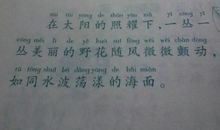 zài tài yáng de zhào yào xià yì cóng yì
在太阳的照耀下,一丛一
cóng měi lì de yě huā suí fēng wēi wēi chàn dòng
丛美丽的野花随风微微颤动,
rú tóng shuǐ bō dàng yàng de hǎi miàn
如同水波荡漾的海面。